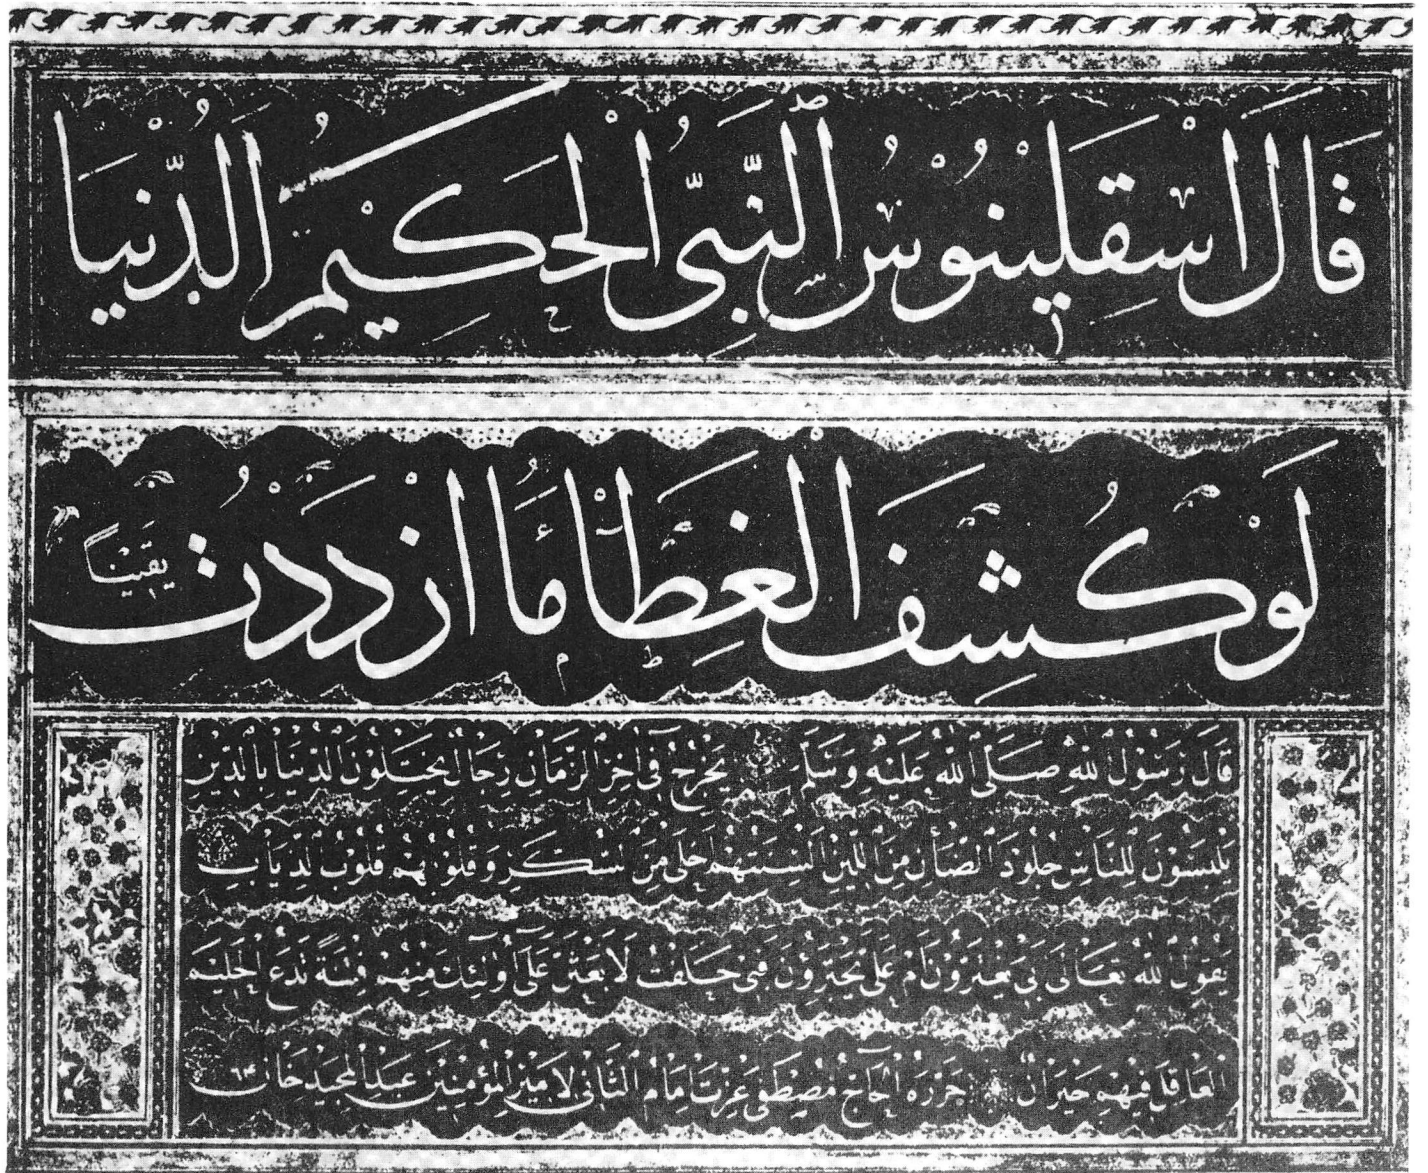 قَالَ اسْقَلِيْنُوْسُ النَّبِيُّ الْحَكِيْمُ الدُّنْيَا
لَوْ كُشِفَ الْغِطَاءُ مَا ازْدَدْتُ يَقِيْنًا
قَالَ رَسُوْلُ اللهِ صَلَّى اللهُ عَلَيْهِ وَسَلَّمَ يَخْرُجُ فِي آخِرِ الزَّمَانِ رِجَالٌ يَخْتَلُوْنَ الدُّنْيَا بِالدِّيْنِ
يَلْبَسُوْنَ لِلنَّاسِ جُلُوْدَ الضَّأْنِ مِنَ اللِّيْنِ اَلْسِنَتُهُمْ اَحْلَى مِنَ السُّكَّرِ وَقُلُوْبُهُمْ قُلُوْبُ الذِّيَابِ
يَقُوْلُ اللهُ تَعَالَى بِي يَغْتَرُّوْنَ اَمْ عَلَيَّ يَجْتَرِؤُنَ فَبِي حَلَفْتُ لَاَبْعَثَنَّ عَلَى اُولٰئِكَ مِنْهُمْ فِتْنَةً تَدَعُ الْحَلِيْمَ
الْعَاقِلَ فِيْهِمْ حَيْرَانَ حَرَّرَهُ الْحَاجُّ مُصْطَفَى عِزَّت اِمَامُ الثَّانِي لِاَمِيْرِ الْمُؤْمِنِيْنَ عَبْدِ الْمَجِيْد خَان